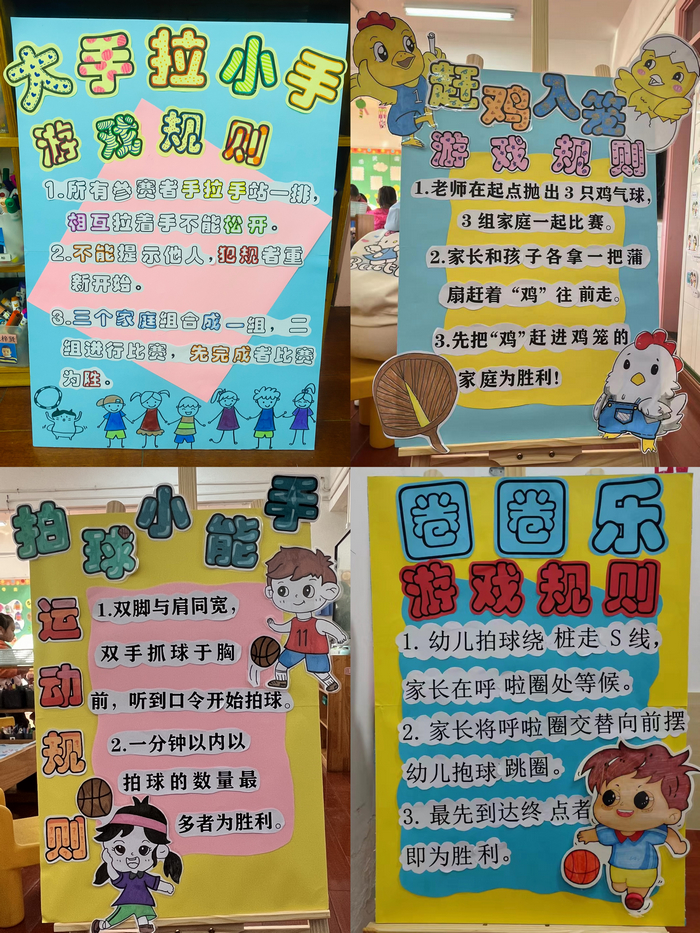 大手拉小手
游戏规则
1.所有参赛者手拉手站一排，
相互拉着手不能松开。
2.不能提示他人，犯规者重
新开始。
3.三个家庭组合成一组，二
组进行比赛，先完成者比赛
为胜。
赶鸡入笼
游戏规则
1.老师在起点抛出3只鸡气球，
3组家庭一起比赛。
2.家长和孩子各拿一把蒲
扇赶着“鸡”往前走。
3.先把“鸡”赶进鸡笼的
家庭为胜利！
拍球小能手
运动规则
1.双脚与肩同宽，
双手抓球于胸
前，听到口令开始拍球。
2.一分钟以内以
拍球的数量最
多者为胜利。
11
圈圈乐
游戏规则
1.幼儿拍球绕桩走S线，
家长在呼啦圈处等候。
2.家长将呼啦圈交替向前摆
幼儿抱球跳圈。
3.最先到达终点者
即为胜利。